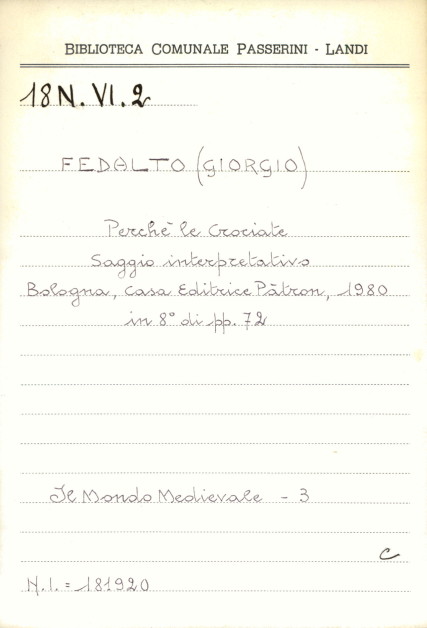 BIBLIOTECA COMUNALE PASSERINI - LANDI
18N. VI. 2
FEDALTO (GIORGIO)
Perchè le Crociate
Saggio interpretativo
Bologna, Casa Editrice Pàtron, 1980
in 8° di pp. 72
Il Mondo Medievale - 3
C
N.I. = 181920